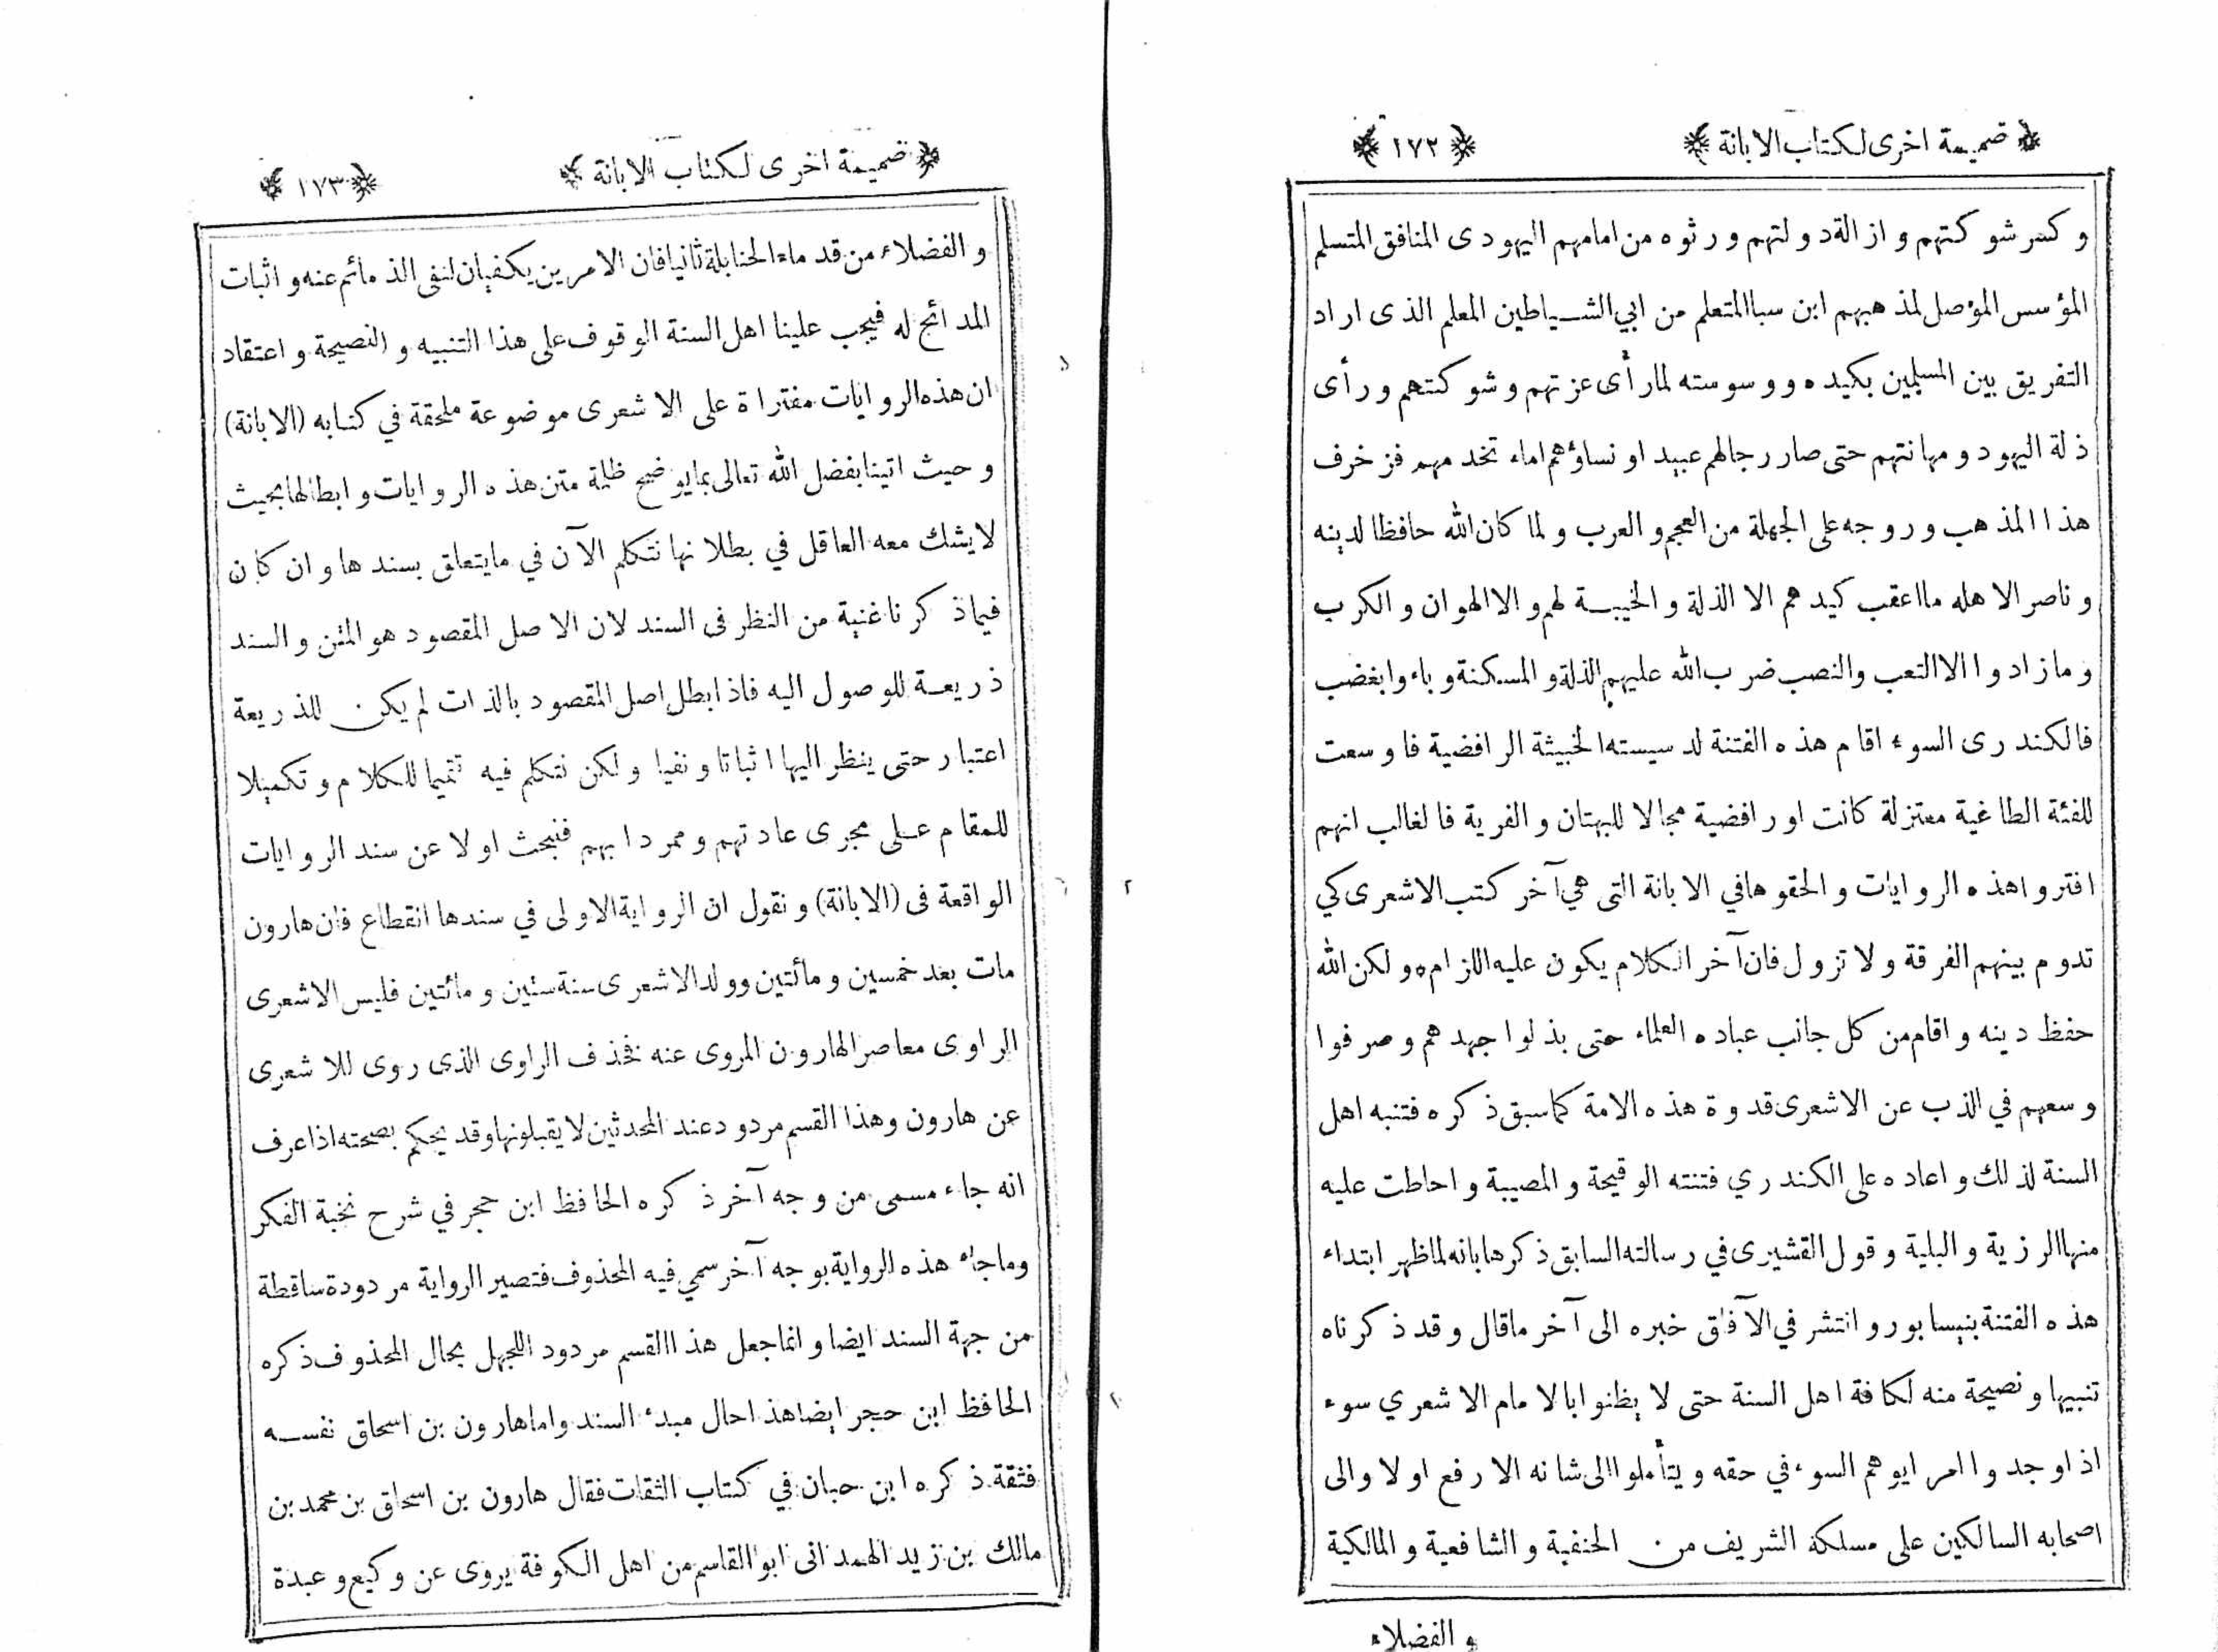 ﴿ ضميمة اخرى لكتاب الابانة ﴾ ﴿ ١٧٢ ﴾
و كسر شوكتهم و ازالة دولتهم و رثوه من امامهم اليهودى المنافق المتسلم
المؤسس المؤصل لمذهبهم ابن سبا المتعلم من ابي الشياطين المعلم الذى اراد
التفريق بين المسلمين بكيده و وسوسته لما رأى عزتهم و شوكتهم و رأى
ذلة اليهود و مهانتهم حتى صار رجالهم عبيدا و نساؤهم اماء تخدمهم فزخرف
هذا المذهب و روجه على الجهلة من العجم و العرب و لما كان الله حافظا لدينه
و ناصرا لاهله ما اعقب كيدهم الا الذلة و الخيبة لهم و الا الهوان و الكرب
و ما زادوا الا التعب والنصب ضرب الله عليهم الذلة و المسكنة و باءوا بغضب
فالكندرى السوء اقام هذه الفتنة لدسيسته الخبيثة الرافضية فاوسعت
للفئة الطاغية معتزلة كانت او رافضية مجالا للبهتان و الفرية فالغالب انهم
افتروا هذه الروايات و الحقوها في الابانة التى هي آخر كتب الاشعرى كي
تدوم بينهم الفرقة و لا تزول فان آخر الكلام يكون عليه اللزام و لكن الله
حفظ دينه و اقام من كل جانب عباده العلماء حتى بذلوا جهدهم و صرفوا
وسعهم في الذب عن الاشعرى قدوة هذه الامة كما سبق ذكره فتنبه اهل
السنة لذلك و اعاده على الكندري فتنته الوقيحة و المصيبة و احاطت عليه
منها الرزية و البلية و قول القشيرى في رسالته السابق ذكرها بانه لما ظهر ابتداء
هذه الفتنة بنيسابور و انتشر في الآفاق خبره الى آخر ما قال و قد ذكرناه
تنبيها و نصيحة منه لكافة اهل السنة حتى لا يظنوا بالامام الاشعري سوء
اذا وجدوا امرا يوهم السوء في حقه و يتأملوا الى شانه الارفع اولا والى
اصحابه السالكين على مسلكه الشريف من الحنفية و الشافعية و المالكية
و الفضلاء
﴿ ضميمة اخرى لكتاب الابانة ﴾ ﴿ ١٧٣ ﴾
و الفضلاء من قدماء الحنابلة ثانيا فان الامرين يكفيان لنفى الذمائم عنه و اثبات
المدائح له فيجب علينا اهل السنة الوقوف على هذا التنبيه و النصيحة و اعتقاد
ان هذه الروايات مفتراة على الاشعرى موضوعة ملحقة في كتابه (الابانة)
و حيث اتينا بفضل الله تعالى بما يوضح ظلمة متن هذه الروايات و ابطالها بحيث
لا يشك معه العاقل في بطلانها نتكلم الآن في ما يتعلق بسندها و ان كان
فيما ذكرنا غنية من النظر فى السند لان الاصل المقصود هو المتن و السند
ذريعة للوصول اليه فاذا بطل اصل المقصود بالذات لم يكن للذريعة
اعتبار حتى ينظر اليها اثباتا و نفيا و لكن نتكلم فيه تتميما للكلام و تكميلا
للمقام على مجرى عادتهم و ممر دابهم فنبحث اولا عن سند الروايات
الواقعة فى (الابانة) و نقول ان الرواية الاولى في سندها انقطاع فان هارون
مات بعد خمسين و مائتين و ولد الاشعرى سنة ستين و مائتين فليس الاشعرى
الراوى معاصرا لهارون المروى عنه فحذف الراوى الذى روى للاشعرى
عن هارون وهذا القسم مردود عند المحدثين لا يقبلونها وقد يحكم بصحته اذا عرف
انه جاء مسمى من وجه آخر ذكره الحافظ ابن حجر في شرح نخبة الفكر
وما جاء هذه الرواية بوجه آخر سمي فيه المحذوف فتصير الرواية مردودة ساقطة
من جهة السند ايضا و انما جعل هذا القسم مردودا للجهل بحال المحذوف ذكره
الحافظ ابن حجر ايضا هذا حال مبدء السند واما هارون بن اسحاق نفسه
فثقة ذكره ابن حبان في كتاب الثقات فقال هارون بن اسحاق بن محمد بن
مالك بن زيد الهمدانى ابو القاسم من اهل الكوفة يروى عن وكيع و عبدة